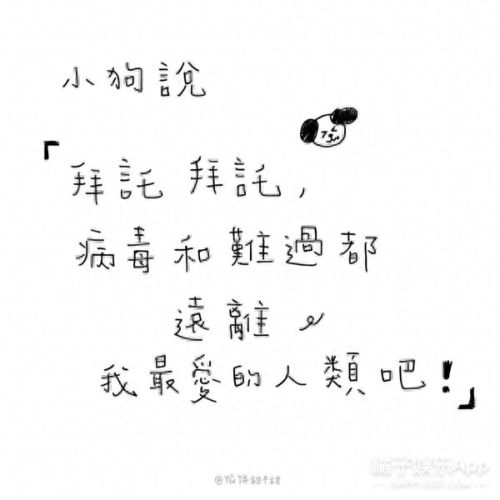 小狗說
「拜託拜託，
病毒和難過都
遠離
我最愛的人類吧！」
橘子娱乐App